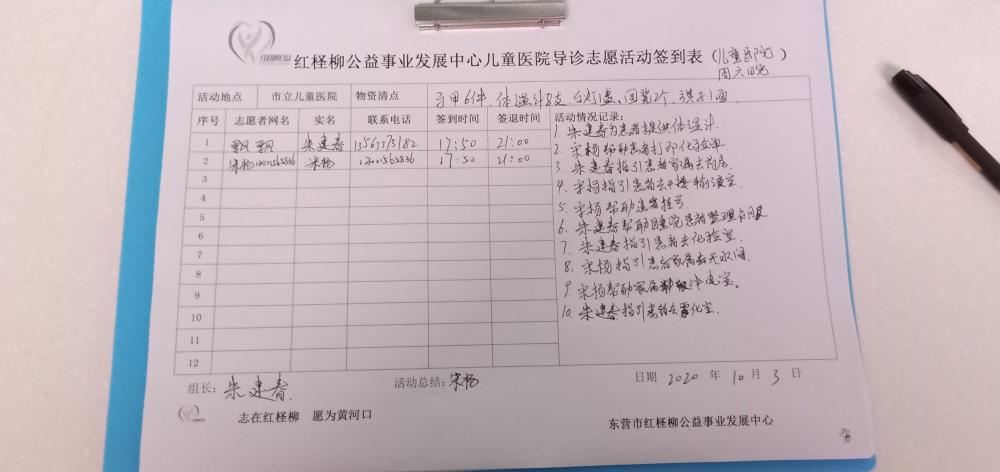 红柽柳公益事业发展中心儿童医院导诊志愿活动签到表（儿童医院
周六晚）
活动地点 市立儿童医院 物资清点 马甲6件、体温计8支、台灯1盏、国旗2个、旗子1面
序号 志愿者网名 实名 联系电话 签到时间 签退时间 活动情况记录:
1 飘飘 朱建春 13563375182 17:50 21:00
2 宋杨 宋杨 17:50 21:00
3
4
5
6
7
8
9
10
11
12
1. 朱建春为患者提供体温计.
2. 宋杨帮助患者打印化验单
3. 朱建春指引患者家属去药房.
4. 宋杨指引患者去4楼输液室.
5. 宋杨帮助患者挂号
6. 朱建春帮助住院患者整理衣服
7. 朱建春指引患者去化验室.
8. 宋杨指引患者家属去开水间.
9. 宋杨帮助家属
10. 朱建春指引患者去雾化室.
组长: 朱建春 活动总结: 宋杨 日期 2020 年 10 月 3 日
志在红柽柳 愿为黄河口 东营市红柽柳公益事业发展中心